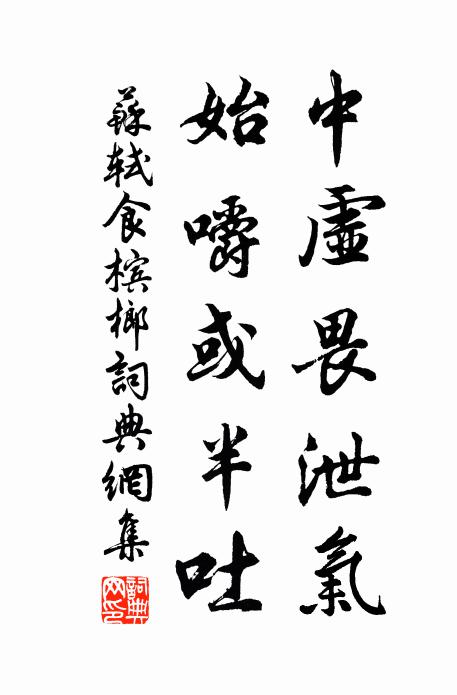 中虛畏泄氣
始嚼或半吐
蘇軾食檳榔詞典網集
詞典网印